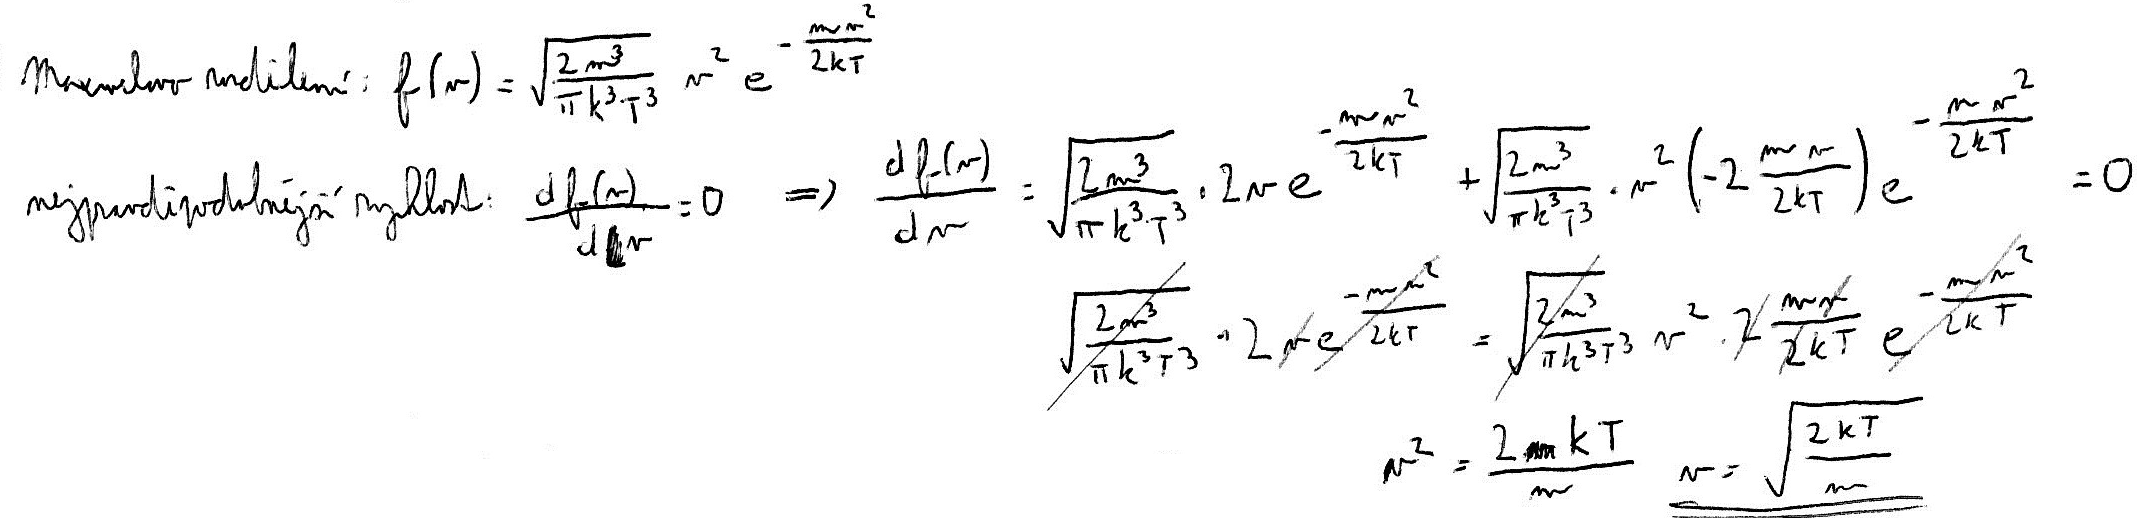 Maxwellovo rozdělení: f(v) = √(2m³/πk³T³) v² e^(-mv²/2kT)
nejpravděpodobnější rychlost: df(v)/dv = 0 => df(v)/dv = √(2m³/πk³T³) · 2v e^(-mv²/2kT) + √(2m³/πk³T³) · v² (-2 mv/2kT) e^(-mv²/2kT) = 0
√(2m³/πk³T³) · 2v e^(-mv²/2kT) = √(2m³/πk³T³) v² · 2 mv/2kT e^(-mv²/2kT)
v² = 2kT/m v = √(2kT/m)